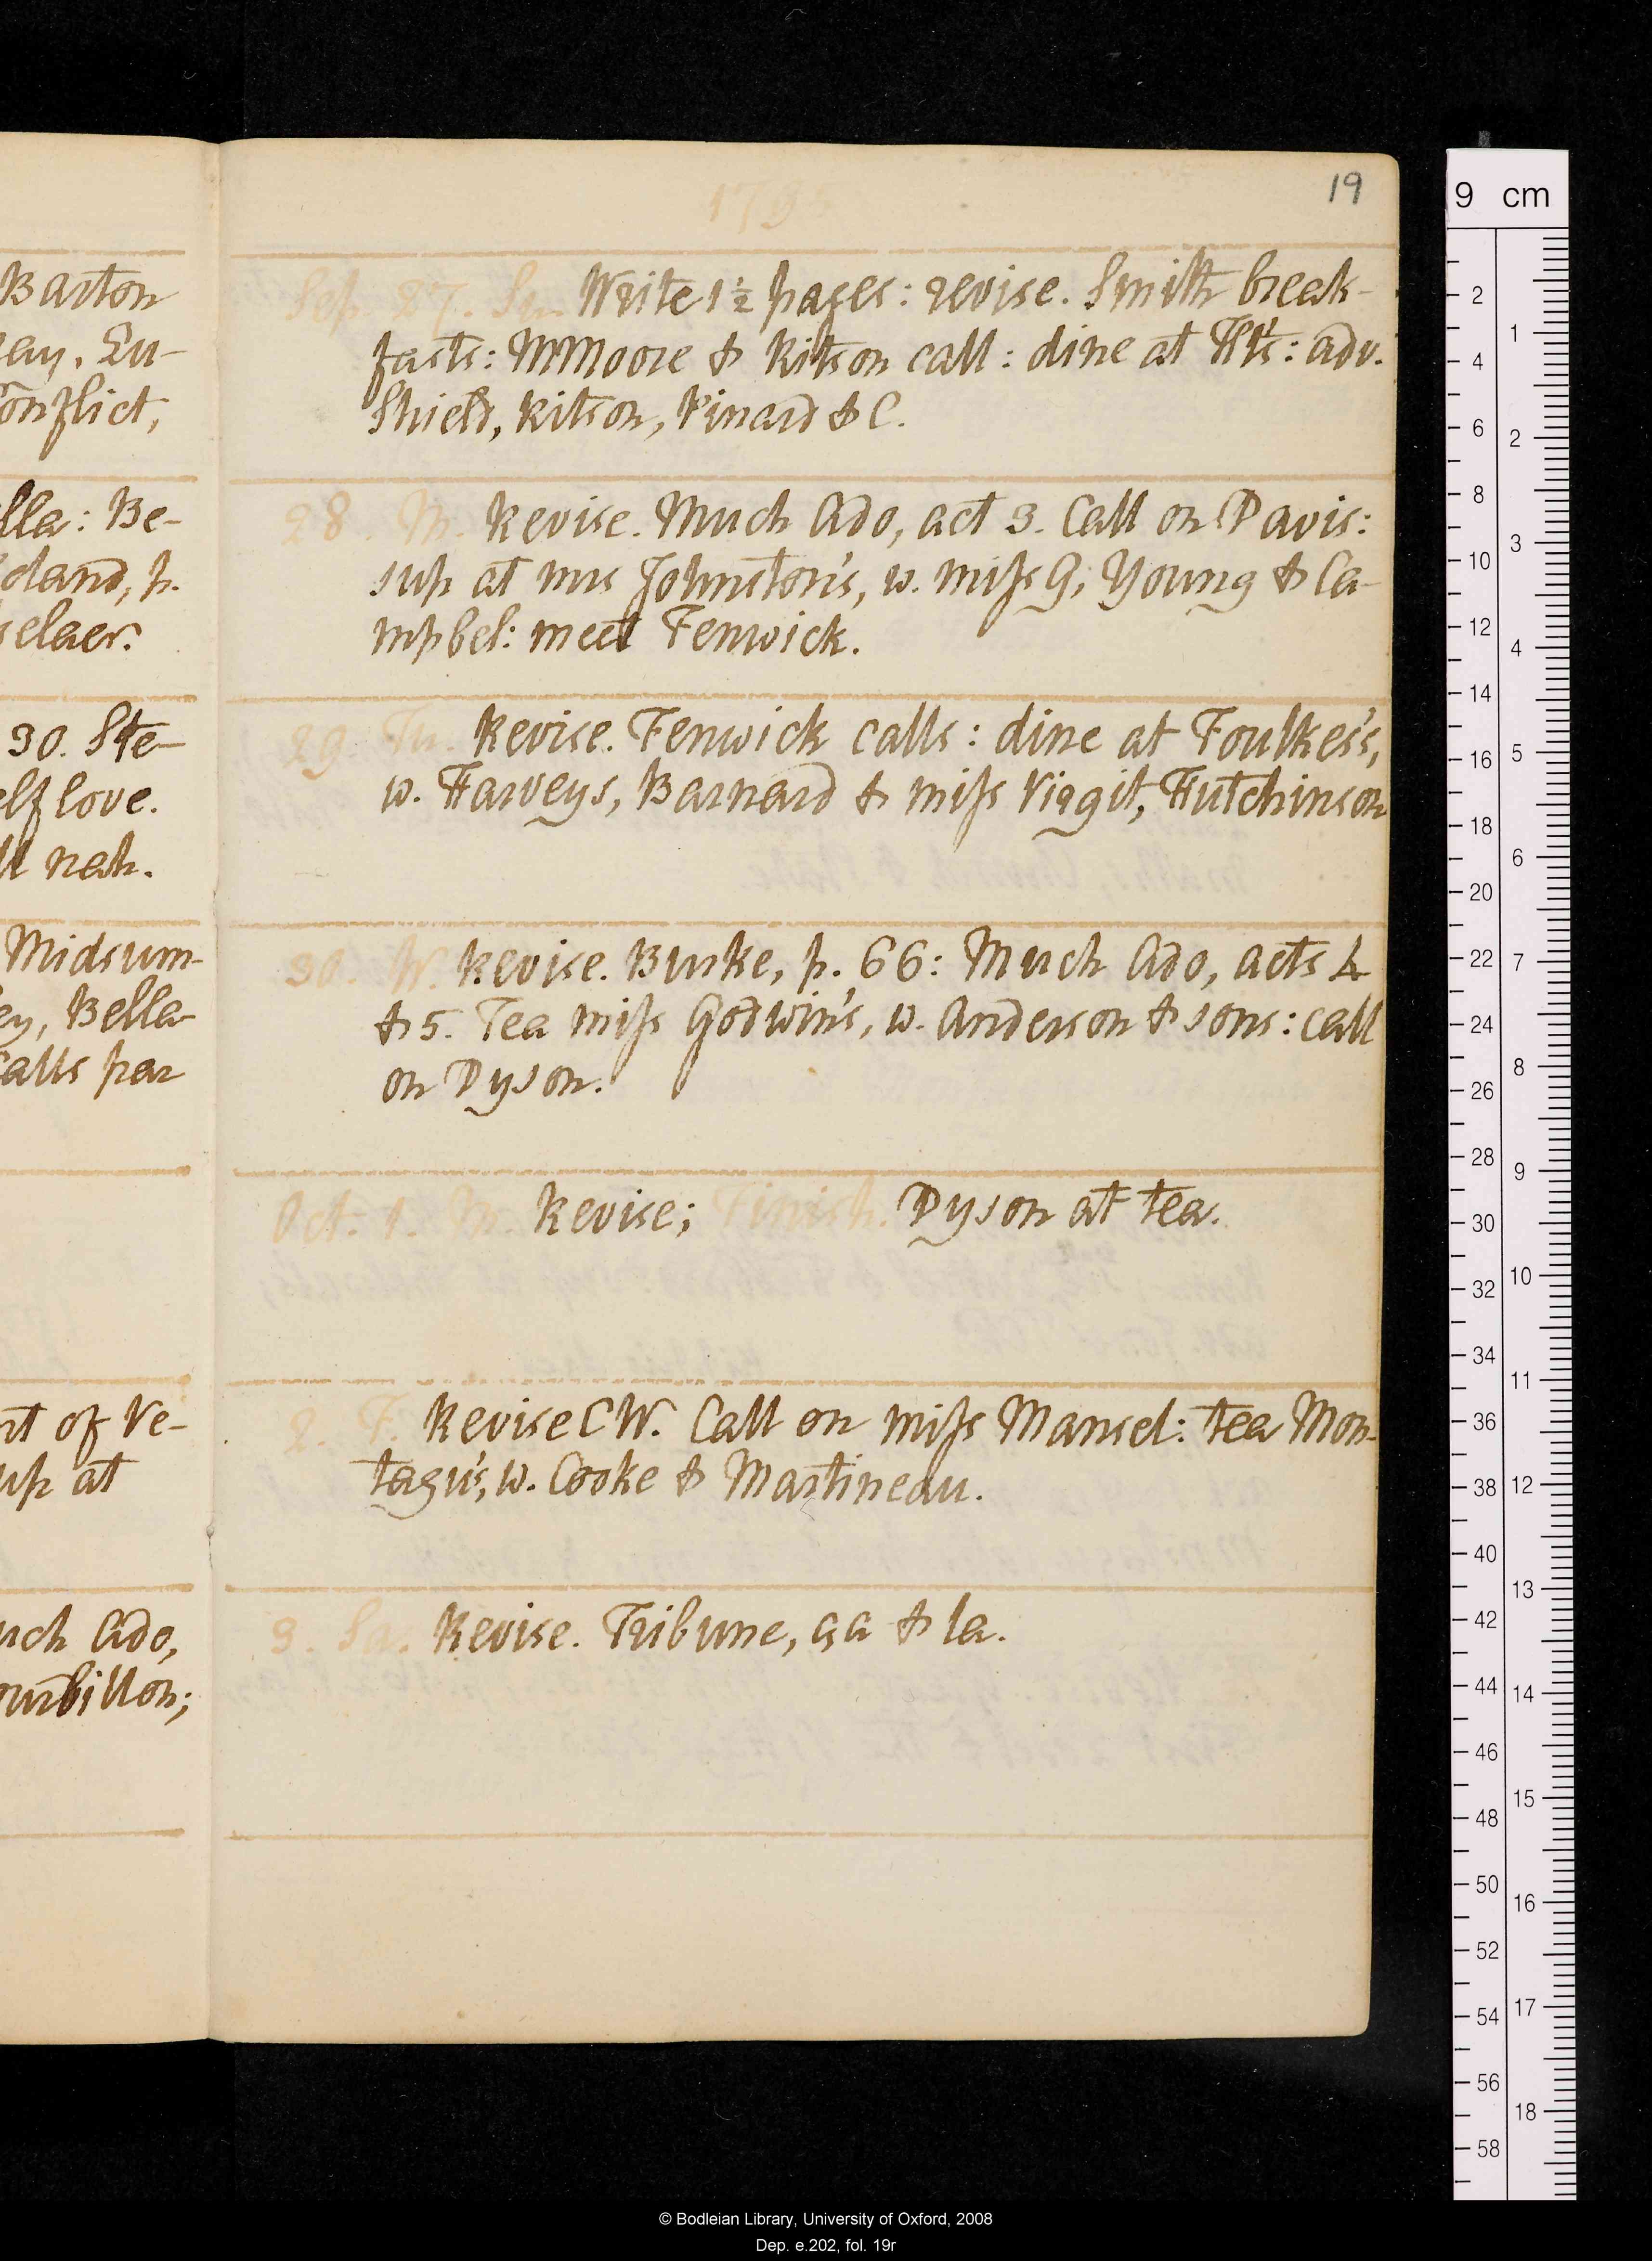 19
1795
Barton
ay. Lu-
onflict,
lla: Be-
dland, p.
selaer.
30. Ste-
elf love.
ll nah.
Midsum-
ey, Bella
calls par
nt of Ve-
up at
uch Ado,
ourbillon;
Sep. 27. Su. Write 1½ pages: revise. Smith break-
fasts: M Moore & Kitson call: dine at Ht's: adv.
Shield, Kitson, Pinard & C.
28. M. Revise. Much Ado, act 3. Call on Davis:
sup at mrs Johnston's, w. miss G, Young & Ca-
mpbel: meet Fenwick.
29. Tu. Revise. Fenwick calls: dine at Foulkes's,
w. Harveys, Barnard & miss Virgil, Hutchinson
30. W. Revise. Burke, p. 66: Much Ado, acts 4
& 5. Tea miss Godwin's, w. Anderson & sons: call
on Dyson.
Oct. 1. Th. Revise; Finish. Dyson at tea.
2. F. Revise CW. Call on miss Mansel: tea Mon-
tagu's, w. Cooke & Martineau.
3. Sa. Revise. Tribune, ça & la.
9 cm
2
4
6
8
10
12
14
16
18
20
22
24
26
28
30
32
34
36
38
40
42
44
46
48
50
52
54
56
58
1
2
3
4
5
6
7
8
9
10
11
12
13
14
15
16
17
18
© Bodleian Library, University of Oxford, 2008
Dep. e.202, fol. 19r